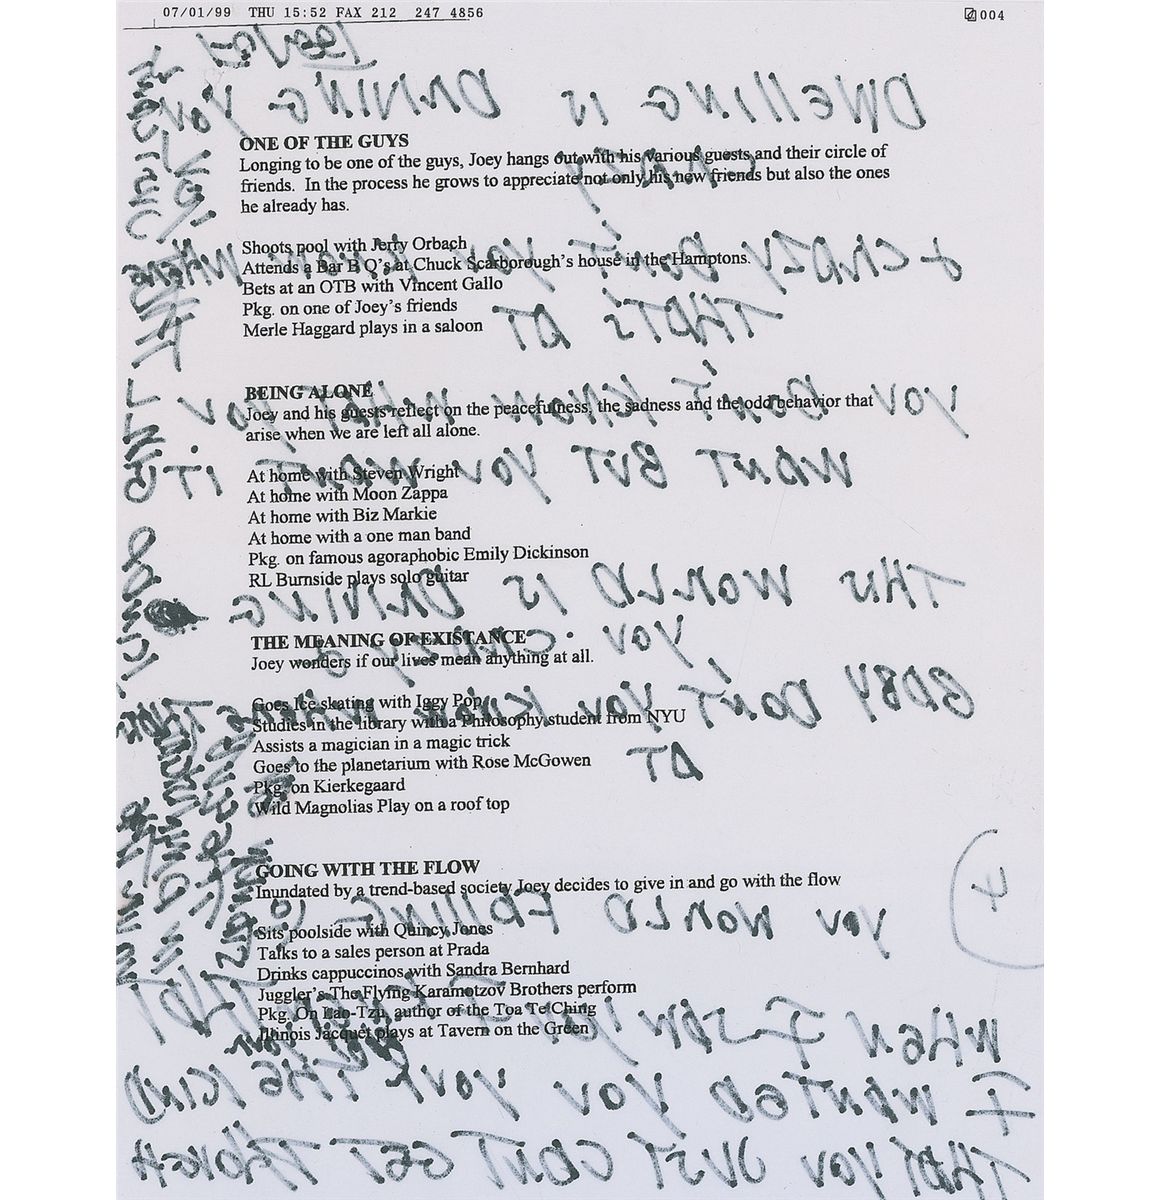 07/01/99 THU 15:52 FAX 212 247 4856 004
DWELLING IS DRIVING YOU
CRAZY
ONE OF THE GUYS
Longing to be one of the guys, Joey hangs out with his various guests and their circle of
friends. In the process he grows to appreciate not only his new friends but also the ones
he already has.
Shoots pool with Jerry Orbach
Attends a Bar B Q's at Chuck Scarborough's house in the Hamptons.
Bets at an OTB with Vincent Gallo
Pkg. on one of Joey's friends
Merle Haggard plays in a saloon
& CRAZY DON'T YOU KNOW WHERE
THAT'S AT
BEING ALONE
Joey and his guests reflect on the peacefulness, the sadness and the odd behavior that
arise when we are left all alone.
YOU DON'T KNOW WHAT YOU
WANT BUT YOU WANT IT
At home with Steven Wright
At home with Moon Zappa
At home with Biz Markie
At home with a one man band
Pkg. on famous agoraphobic Emily Dickinson
RL Burnside plays solo guitar
THIS WORLD IS DRIVING
YOU CRAZY
THE MEANING OF EXISTANCE
Joey wonders if our lives mean anything at all.
BABY DON'T YOU KNOW WHERE
AT
Goes Ice skating with Iggy Pop
Studies in the library with a Philosophy student from NYU
Assists a magician in a magic trick
Goes to the planetarium with Rose McGowen
Pkg. on Kierkegaard
Wild Magnolias Play on a roof top
GOING WITH THE FLOW
Inundated by a trend-based society Joey decides to give in and go with the flow
YOU WORLD FALLING
Sits poolside with Quincy Jones
Talks to a sales person at Prada
Drinks cappuccinos with Sandra Bernhard
Juggler's The Flying Karamotzov Brothers perform
Pkg. On Lao-Tzu, author of the Toa Te Ching
Illinois Jacquet plays at Tavern on the Green
WHEN I SAW YOU I KNEW THAT
I WANTED YOU YOUR THE KIND
THAT YOU JUST CANT GET ENOUGH